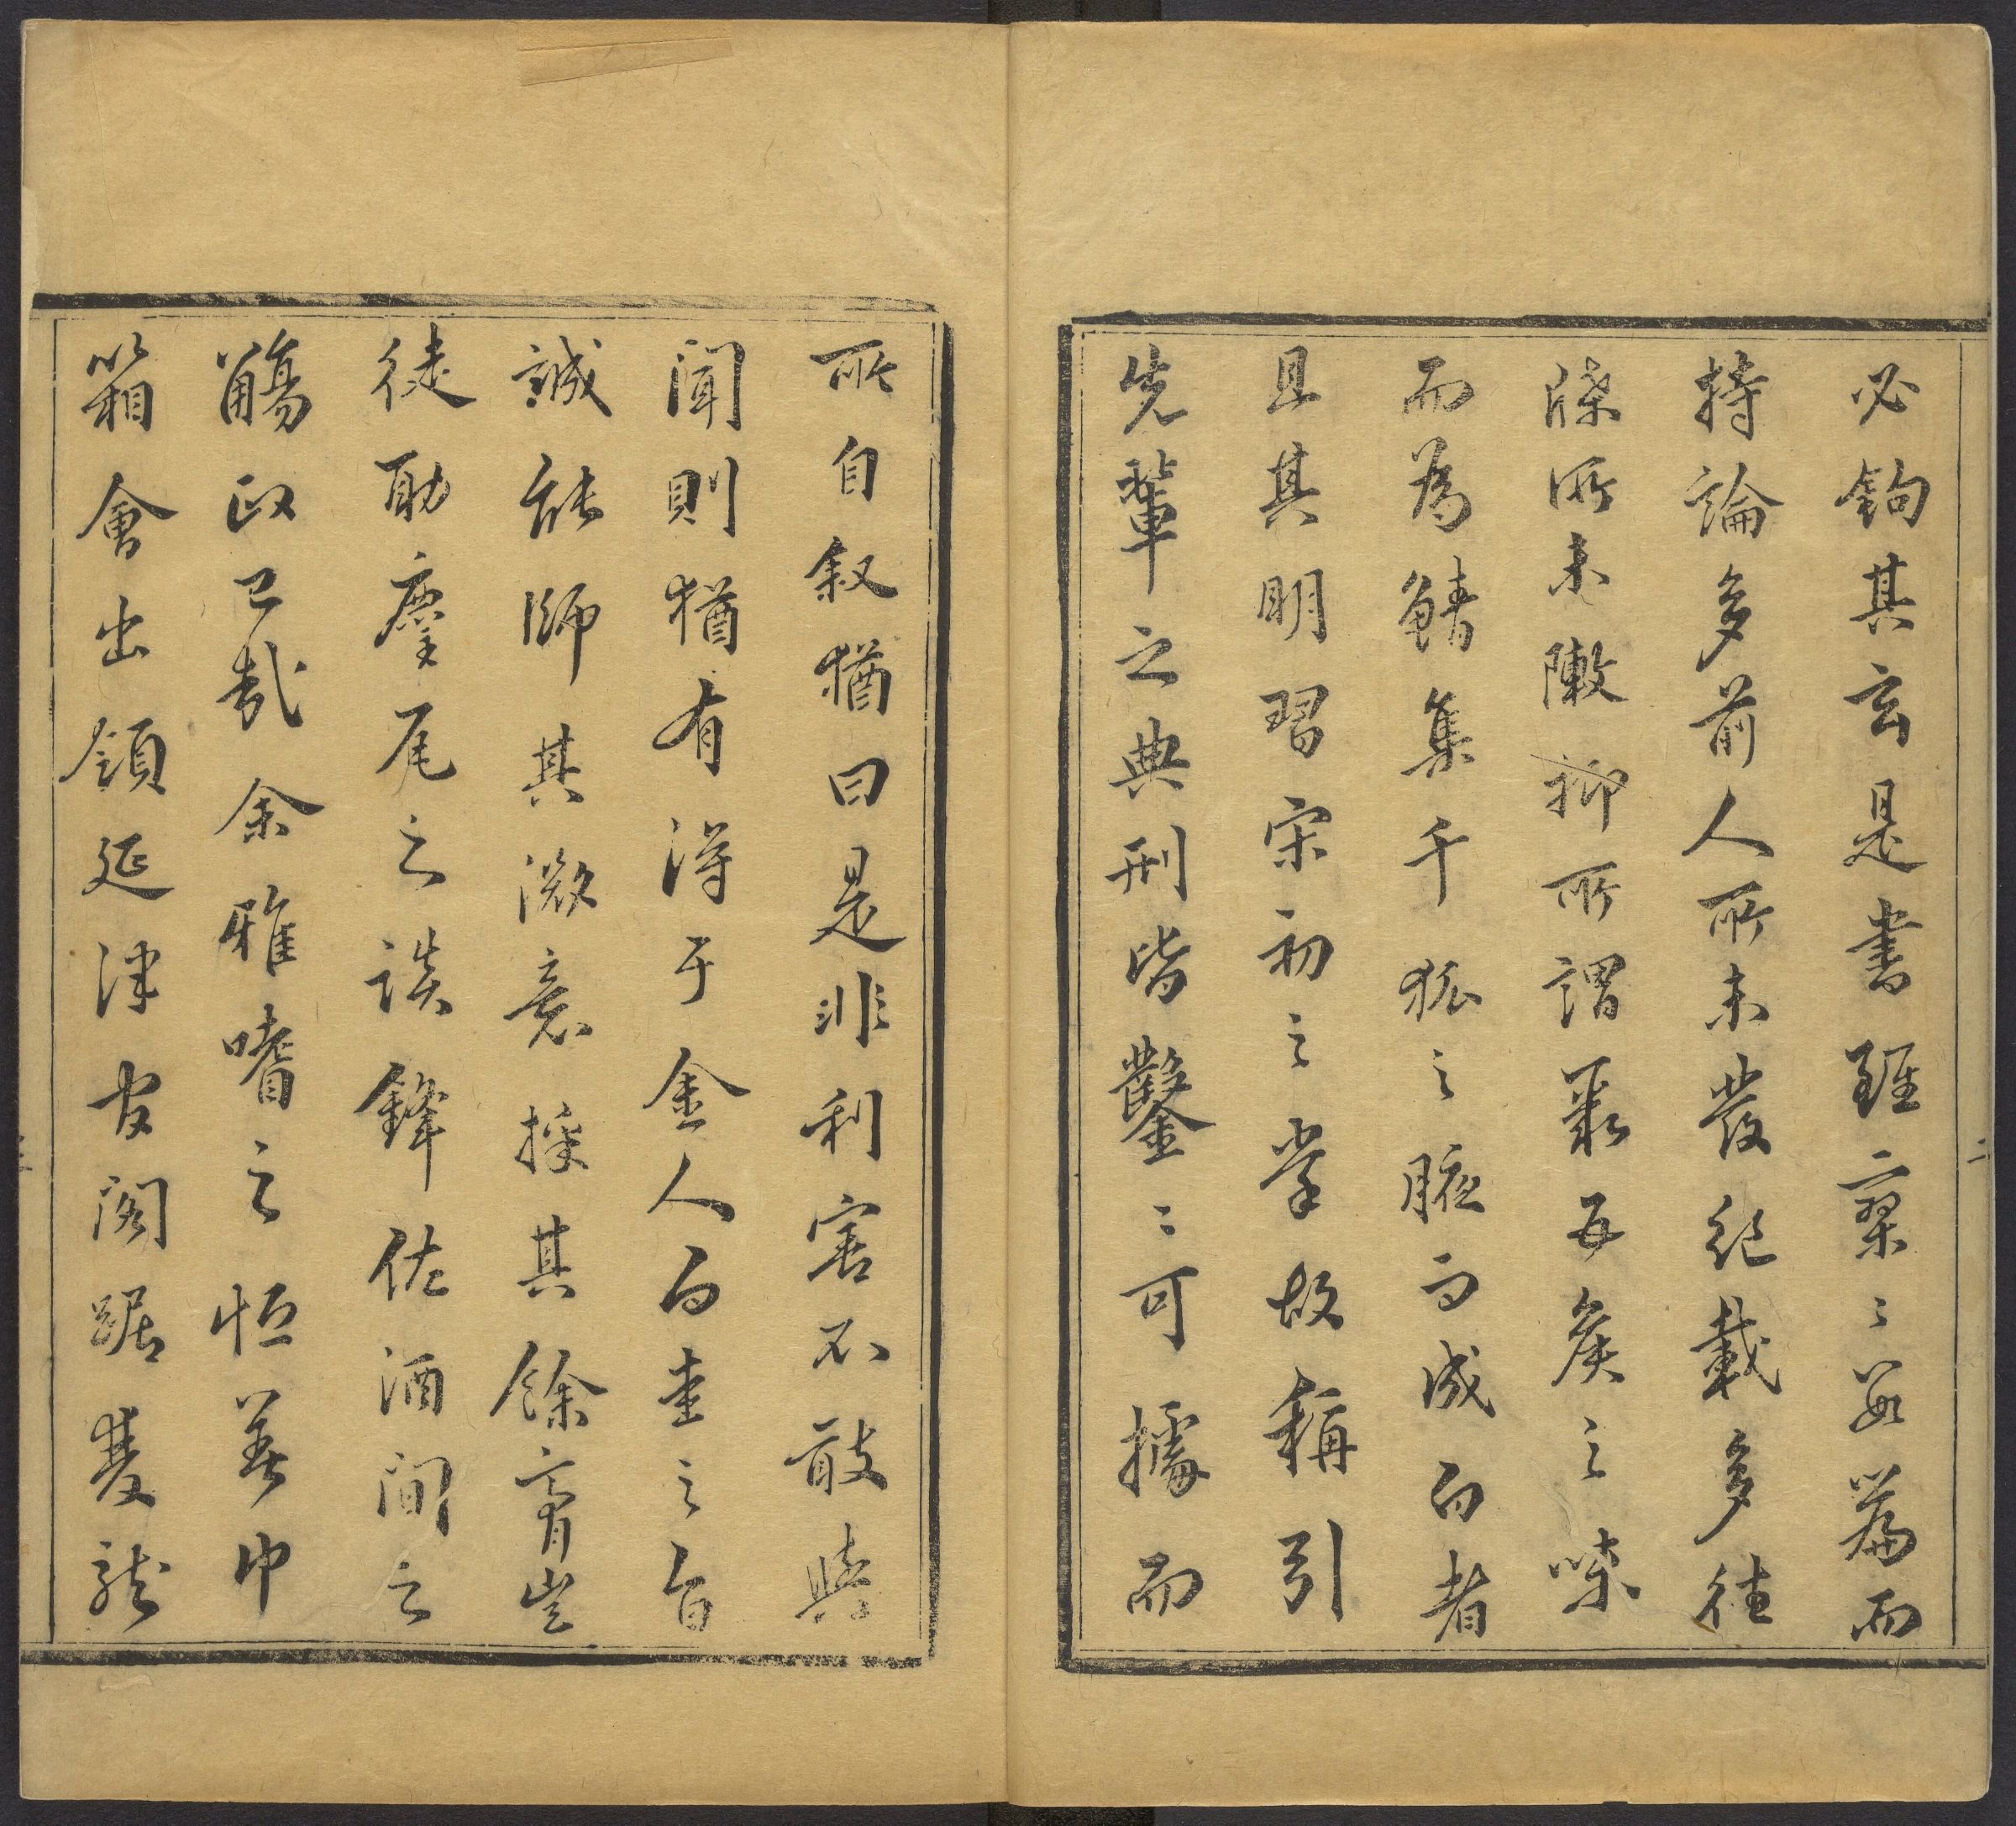 必鉤其玄是書雖寥〻數篇而
持論多前人所未發紀載多往
牒所未陳抑所謂聚五侯之味
而為鯖集千狐之腋而成白者
且其明習宋初之掌故稱引
先輩之典刑皆鑿〻可據而
所自叙猶曰是非利害不敢與
聞則猶有得于金人白圭之旨
誠能師其微意採其餘膏豈
徒助麈尾之談鋒佐酒間之
觴政已哉余雅嗜之恒羞巾
箱會出領延津官閣踞雙龍
二